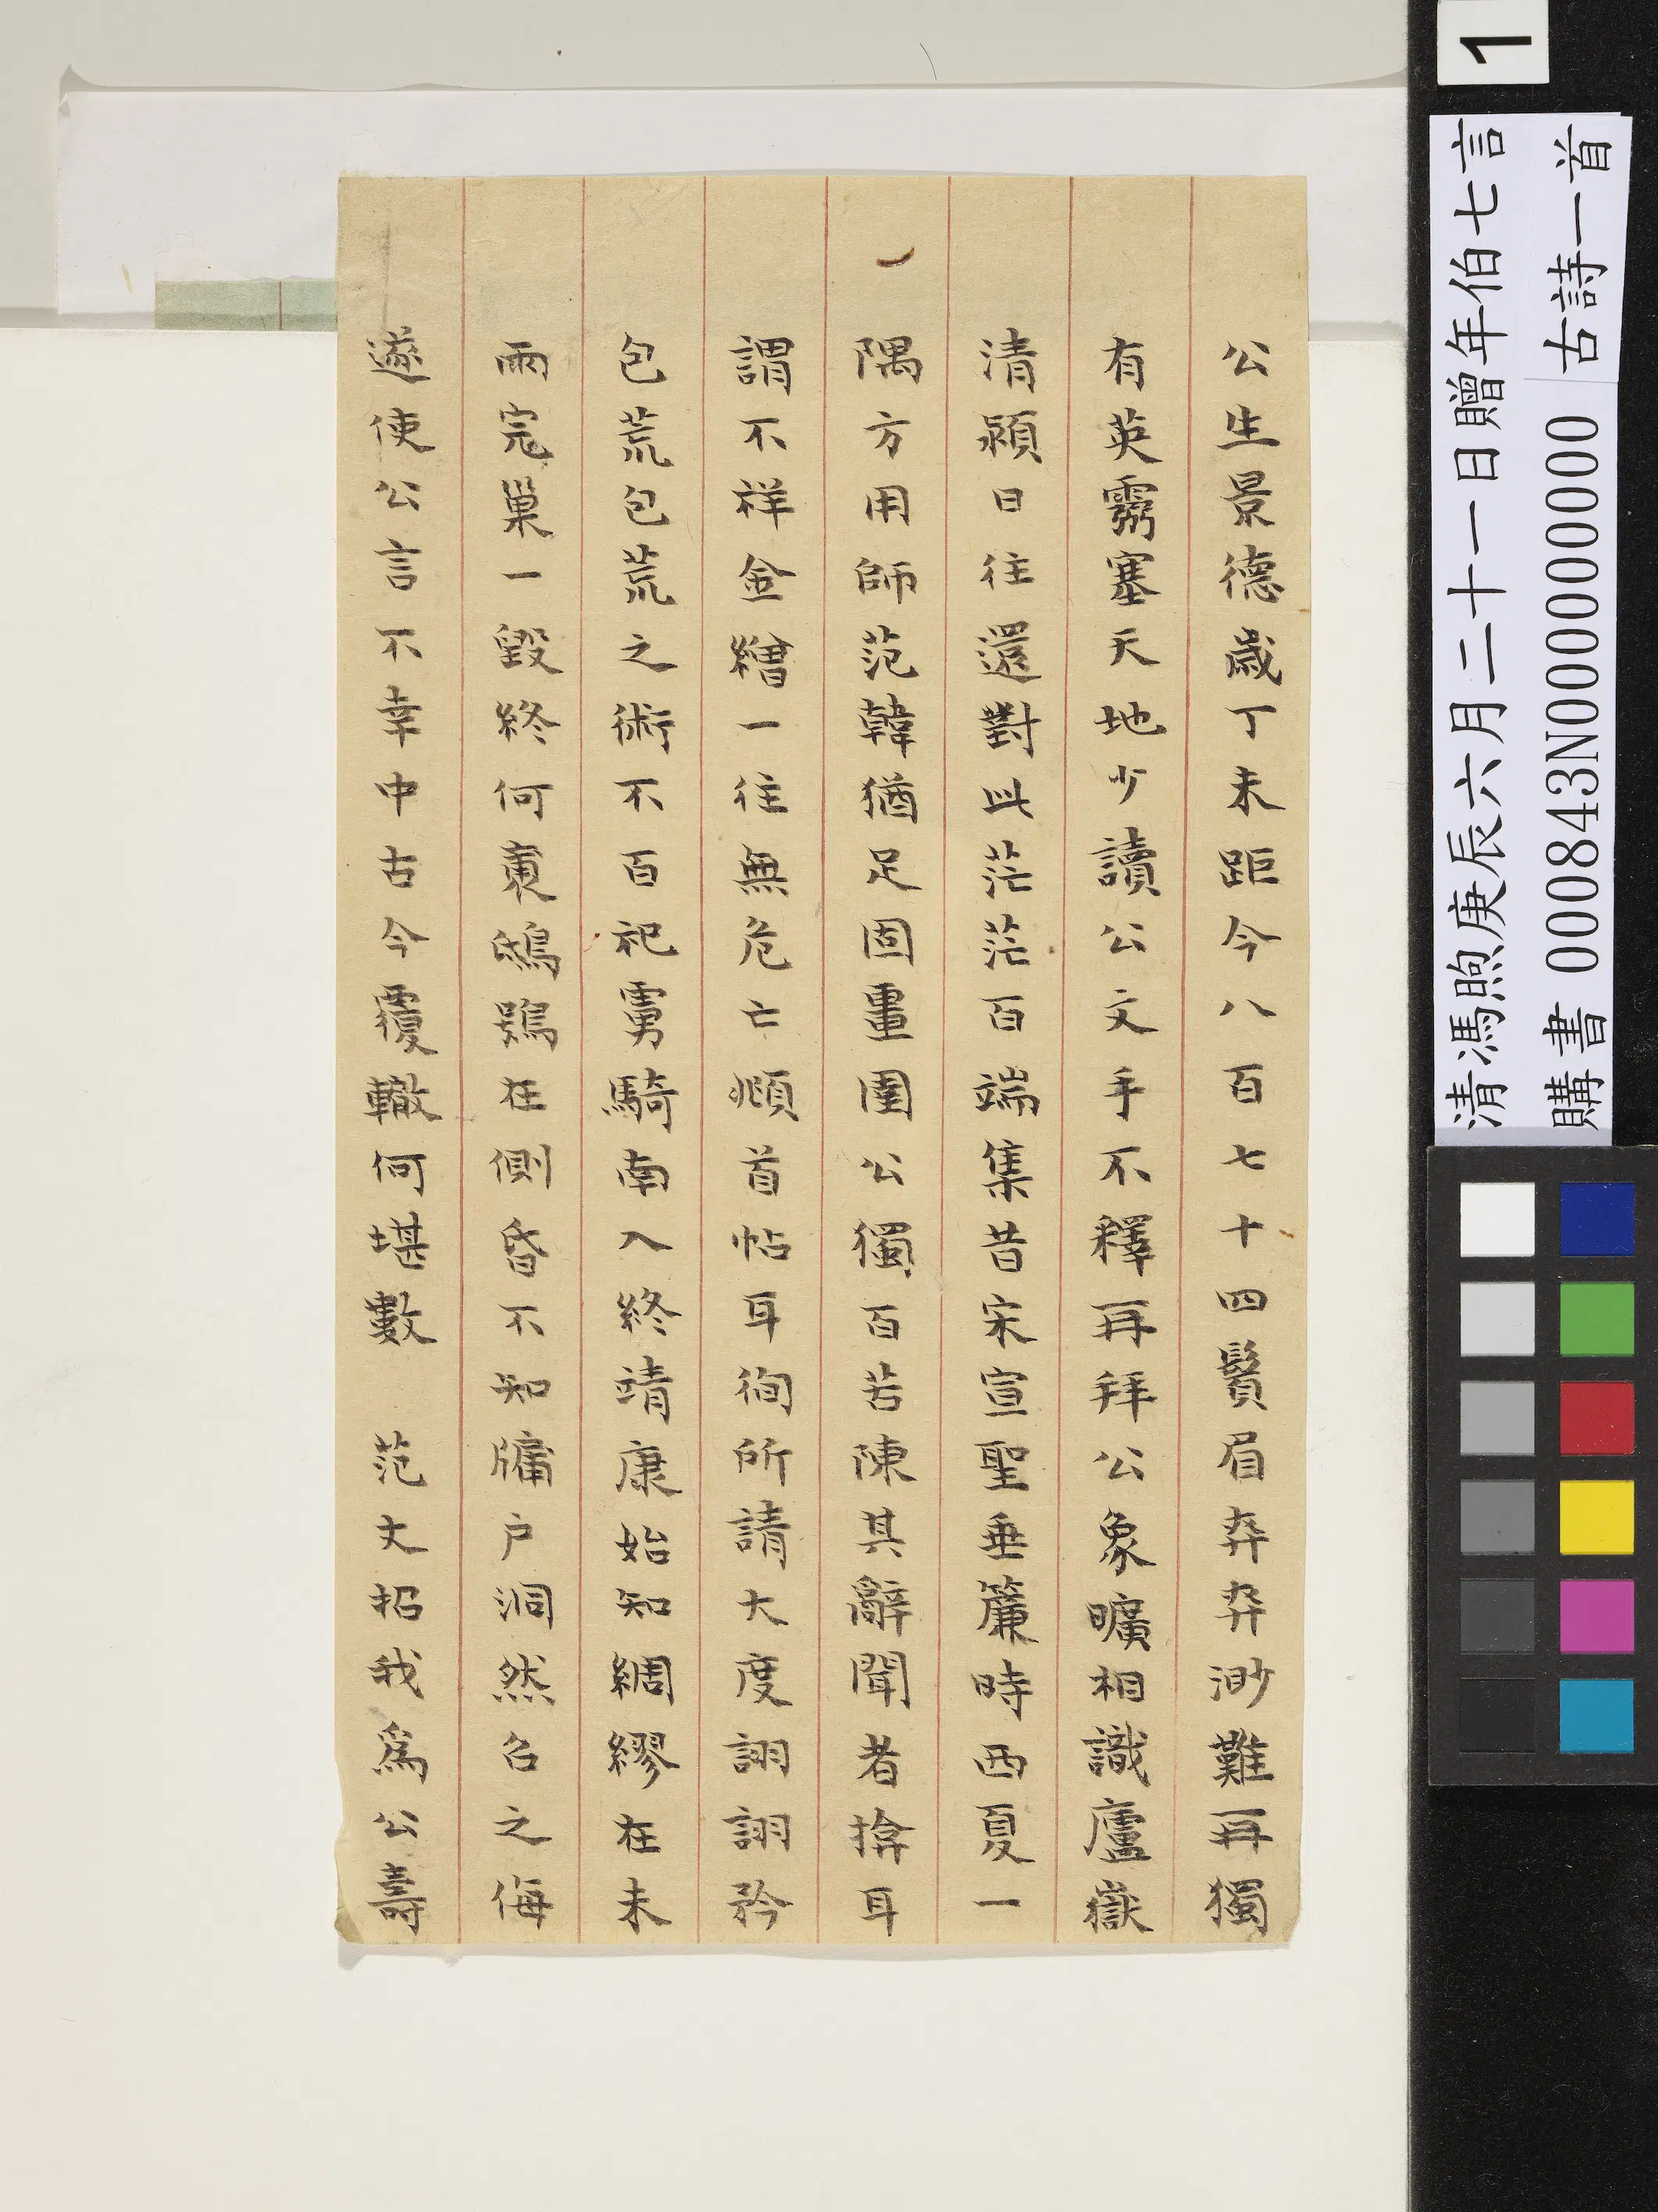 公生景德歲丁未距今八百七十四鬢眉弈弈渺難再獨
有英靈塞天地少讀公文手不釋再拜公象曠相識廬嶽
清潁日往還對此茫茫百端集昔宋宣聖垂簾時西夏一
隅方用師范韓猶足固畺圉公獨百苦陳其辭聞者揜耳
謂不祥金繒一往無危亡頫首帖耳徇所請大度詡詡矜
包荒包荒之術不百祀虜騎南入終靖康始知綢繆在未
雨完巢一毀終何裨鴟鴞在側昏不知牖户洞然召之侮
遂使公言不幸中古今覆轍何堪數 范丈招我為公壽
1
清馮煦庚辰六月二十一日贈年伯七言古詩一首
購書 000843N000000000